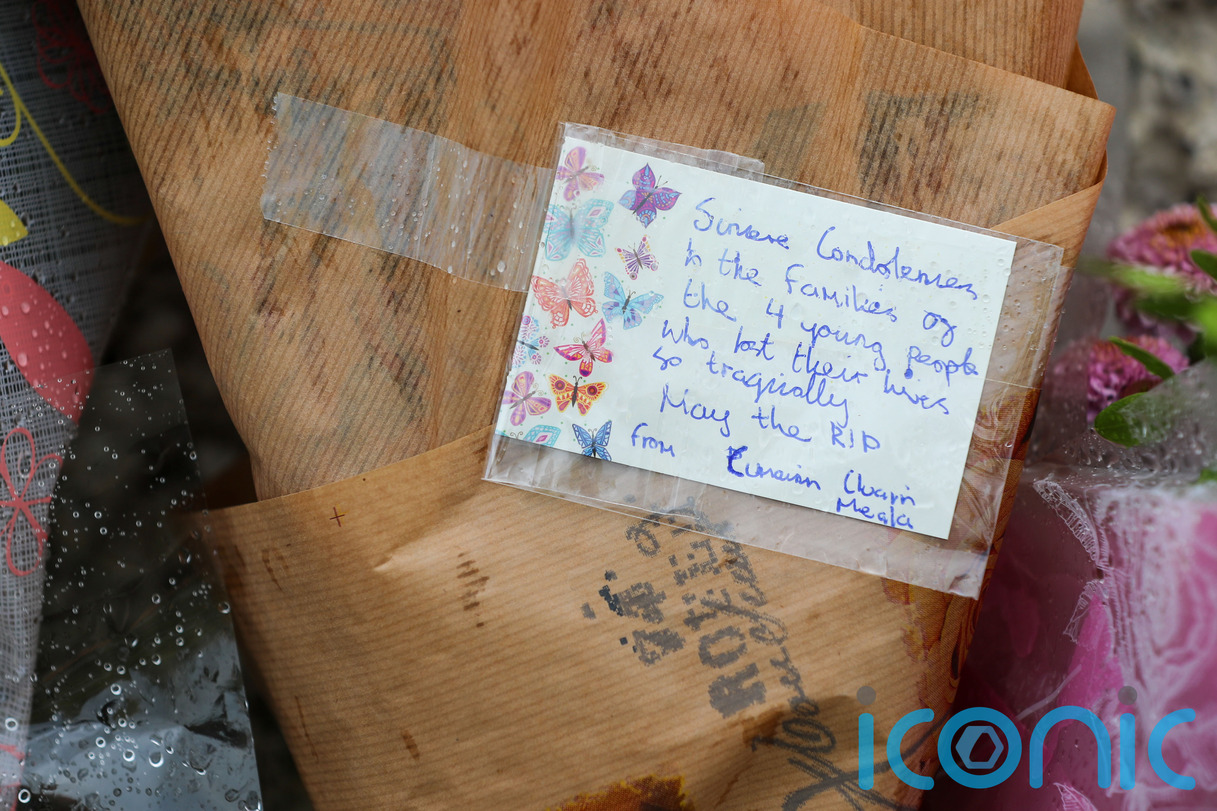 Sincere Condolences
to the families of
the 4 young people
who lost their lives
so tragically
May the RIP
from Cumainn Cluain
Meala
iconic